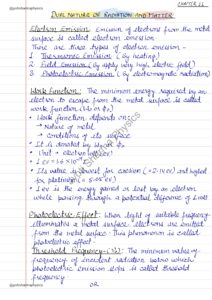 @gaurabsarmaphysics
CHAPTER 11
DUAL NATURE OF RADIATION AND MATTER
Electron Emission: Emission of electrons from the metal
surface is called electron emission.
There are three types of electron emission -
1 Thermionic Emission (by heating)
2 Field Emission (by apply very high electric field)
3 Photoelectric Emission (by electromagnetic radiation)
Work Function: The minimum energy required by an
electron to escape from the metal surface is called
work function (W₀ or φ₀)
→ Work function depends on
→ Nature of metal
→ conditions of its surface
→ It is denoted by W₀ or φ₀
→ Unit - electron volt (eV)
→ 1 eV = 1.6 × 10⁻¹⁹ J
→ Its value is lowest for caesium (= 2.14 eV) and highest
for platinum (= 5.65 eV)
→ 1 eV is the energy gained or lost by an electron
while passing through a potential difference of 1 volt
Photoelectric Effect: When light of suitable frequency
illuminates a metal surface, electrons are emitted
from the metal surface. This phenomenon is called
photoelectric effect.
Threshold Frequency (ν₀): The minimum value of
frequency of incident radiation below which
photoelectric emission stops is called threshold
frequency
OR